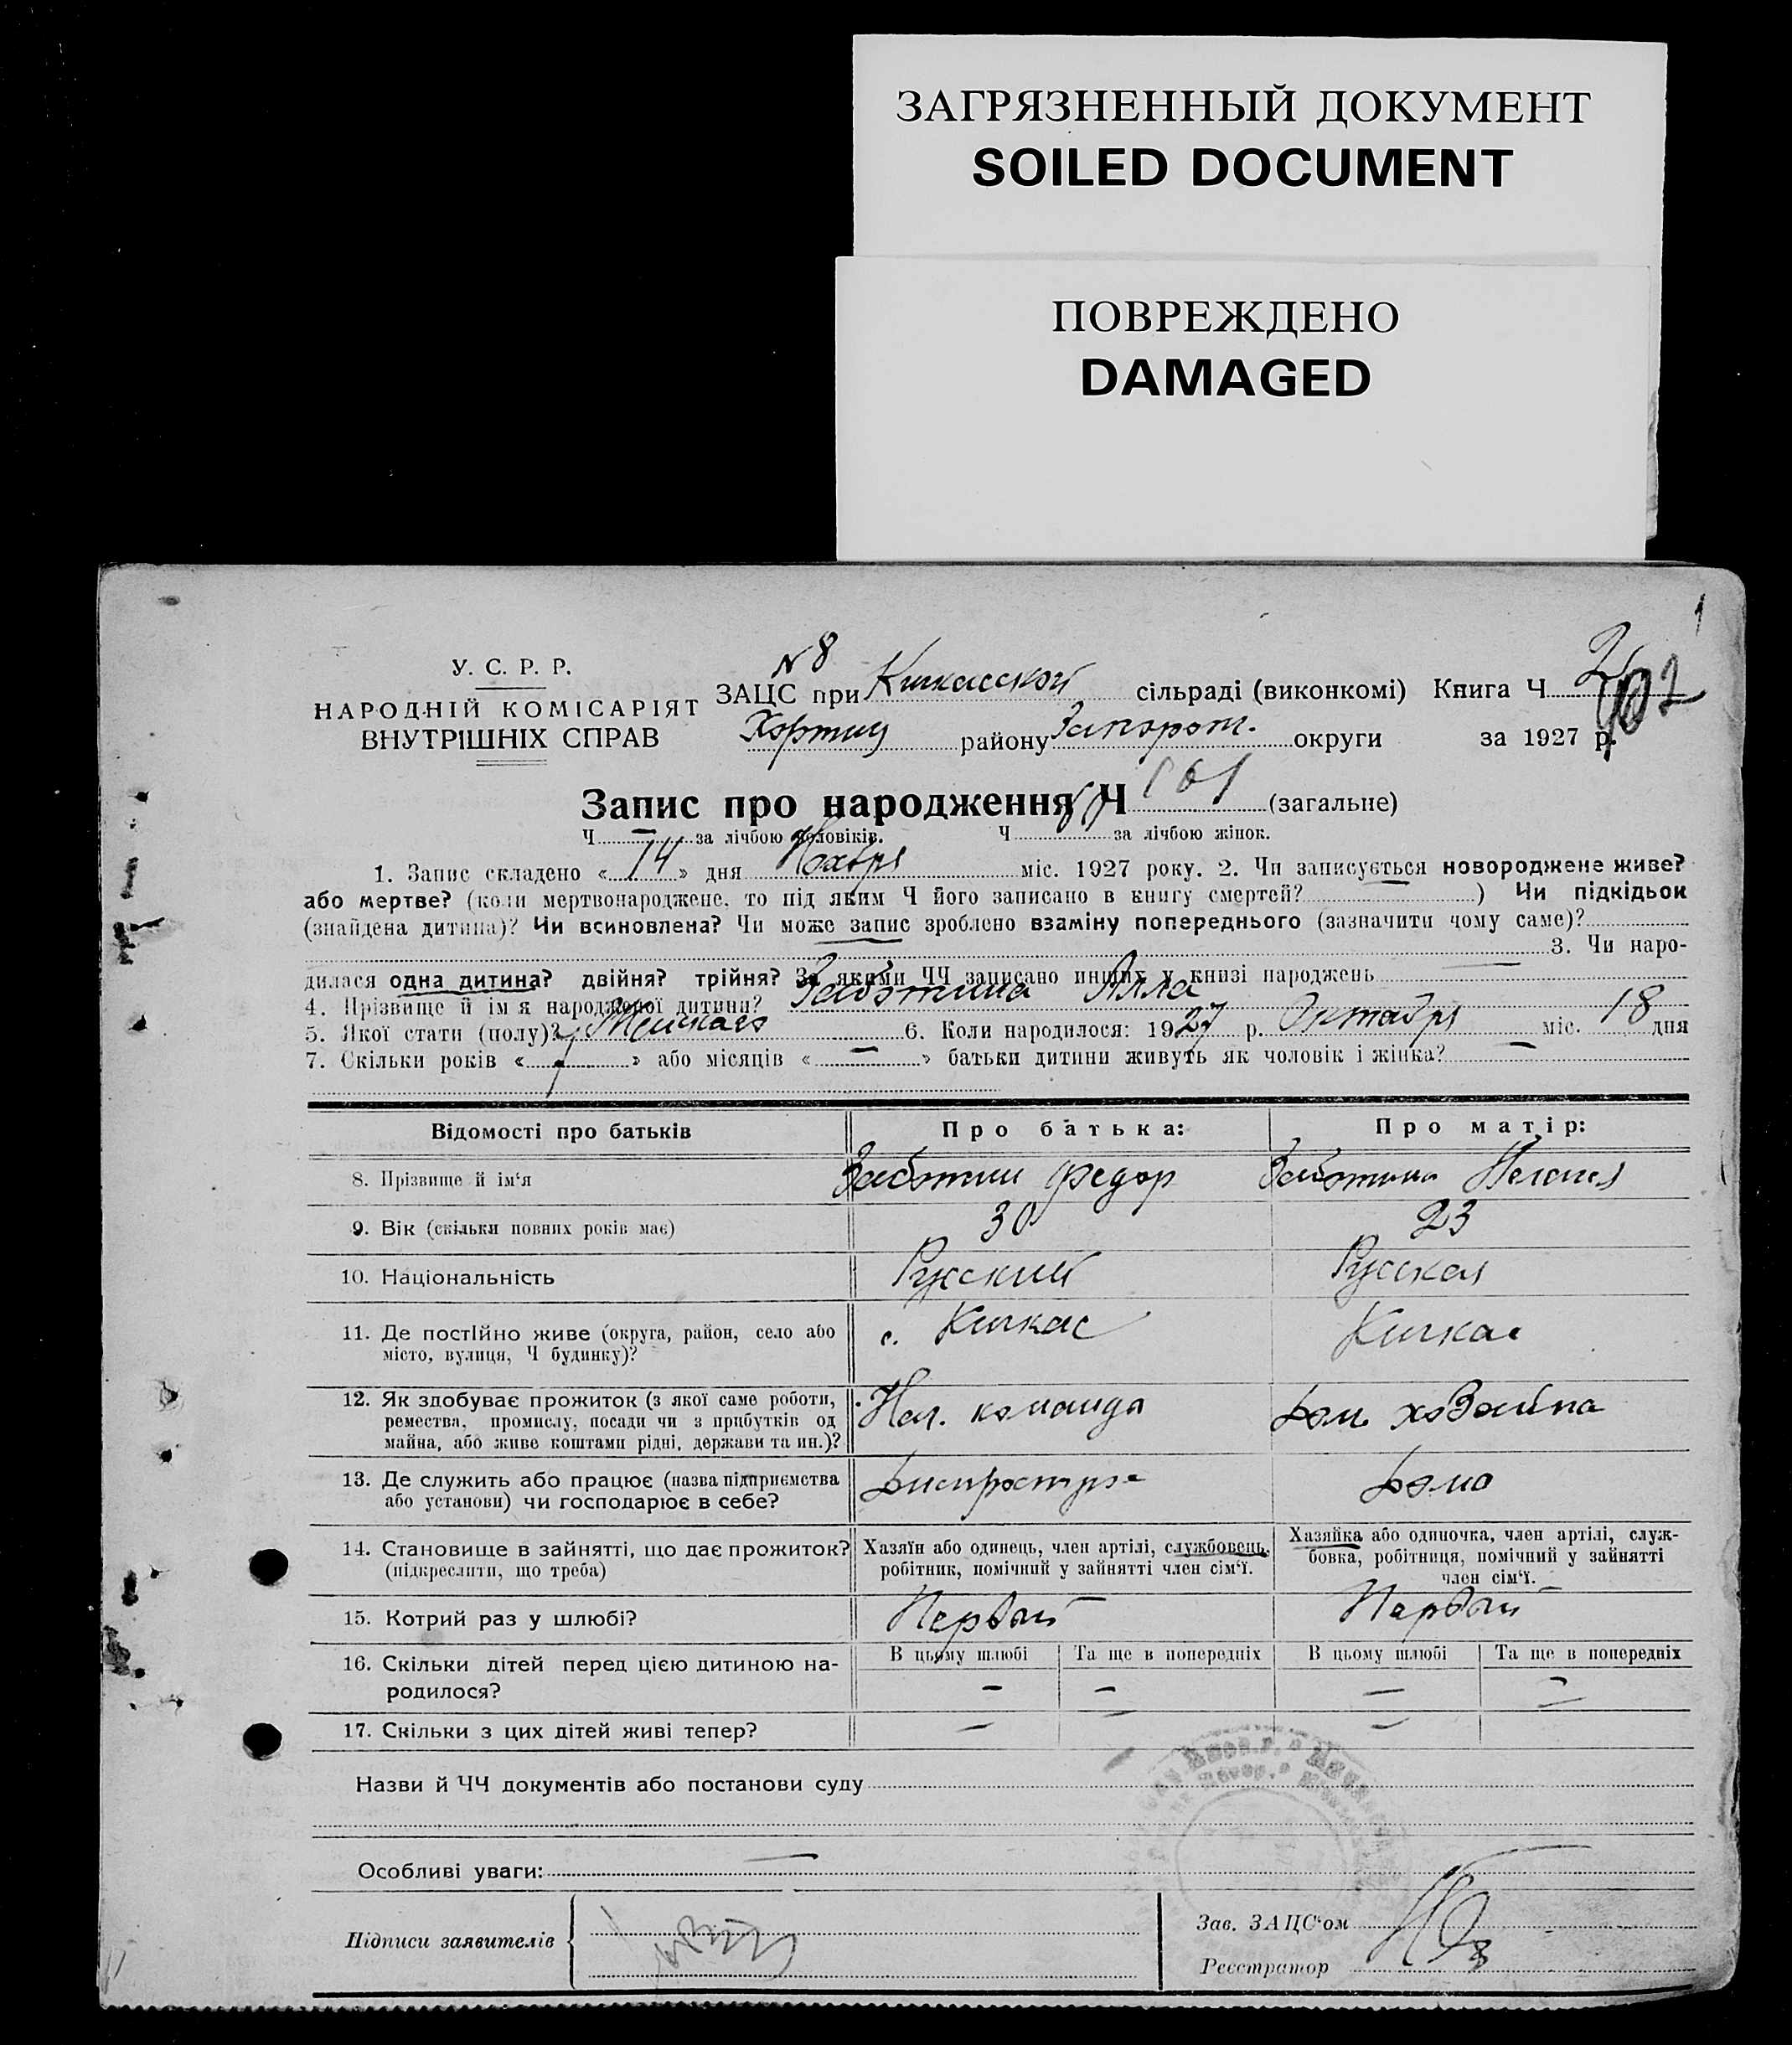 ЗАГРЯЗНЕННЫЙ ДОКУМЕНТ
SOILED DOCUMENT
ПОВРЕЖДЕНО
DAMAGED
1
У. С. Р. Р.
НАРОДНІЙ КОМІСАРІЯТ
ВНУТРІШНІХ СПРАВ
N 8
ЗАЦС при Кичкасской сільраді (виконкомі) Книга Ч 2
102
Хортиц району Запорож. округи за 1927 р.
Запис про народження Ч 101 (загальне)
Ч — за лічбою чоловіків. Ч за лічбою жінок.
1. Запис складено « 14 » дня Ноября міс. 1927 року. 2. Чи записується новороджене живе?
або мертве? (коли мертвонароджене, то під яким Ч його записано в книгу смертей? ) Чи підкідьок
(знайдена дитина)? Чи всиновлена? Чи може запис зроблено взаміну попереднього (зазначити чому саме)?
3. Чи наро-
дилася одна дитина? двійня? трійня? За якими ЧЧ записано инших у книзі народжень —
4. Прізвище й ім'я народженої дитини? Заботина Алла
5. Якої стати (полу)? Женского 6. Коли народилося: 1927 р. Октября міс. 18 дня
7. Скільки років « 1 » або місяців « — » батьки дитини живуть як чоловік і жінка? —
Відомості про батьків Про батька: Про матір:
8. Прізвище й ім'я Заботин Федор Заботина
9. Вік (скільки повних років має) 30 23
10. Національність Русский Русская
11. Де постійно живе (округа, район, село або с. Кичкас Кичкас
місто, вулиця, Ч будинку)?
12. Як здобуває прожиток (з якої саме роботи, Нач. команда Дом. хозяйка
ремества, промислу, посади чи з прибутків од
майна, або живе коштами рідні, держави та ин.)?
13. Де служить або працює (назва підприємства Днепрострое Дома
або установи) чи господарює в себе?
14. Становище в зайнятті, що дає прожиток? Хазяїн або одинець, член артілі, службовець, Хазяйка або одиночка, член артілі, служ-
(підкреслити, що треба) робітник, помічний у зайнятті член сім'ї. бовка, робітниця, помічний у зайнятті
член сім'ї.
15. Котрий раз у шлюбі? Первый Первый
16. Скільки дітей перед цією дитиною на- В цьому шлюбі Та ще в попередніх В цьому шлюбі Та ще в попередніх
родилося? — — — —
17. Скільки з цих дітей живі тепер? — — —
Назви й ЧЧ документів або постанови суду
Особливі уваги: —
Підписи заявителів
Зав. ЗАЦС'ом
Реєстратор